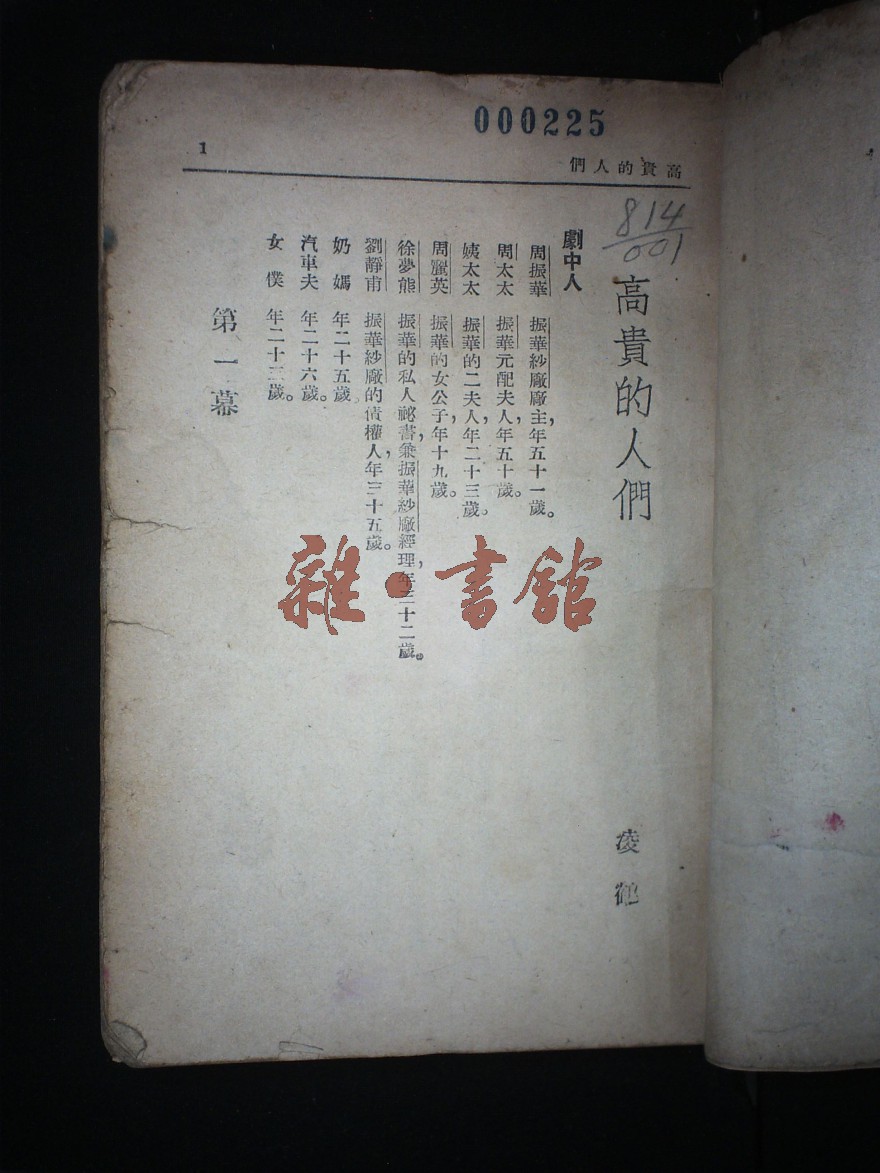 000225
1
高貴的人們
814
001
高貴的人們
凌鶴
劇中人
周振華 振華紗廠廠主，年五十一歲。
周太太 振華元配夫人，年五十歲。
姨太太 振華的二夫人，年二十三歲。
周麗英 振華的女公子，年十九歲。
徐夢熊 振華的私人祕書，兼振華紗廠經理，年三十二歲。
劉靜甫 振華紗廠的債權人，年三十五歲。
奶媽 年二十五歲
汽車夫 年二十六歲。
女僕 年二十二歲。
第一幕
雜·書館